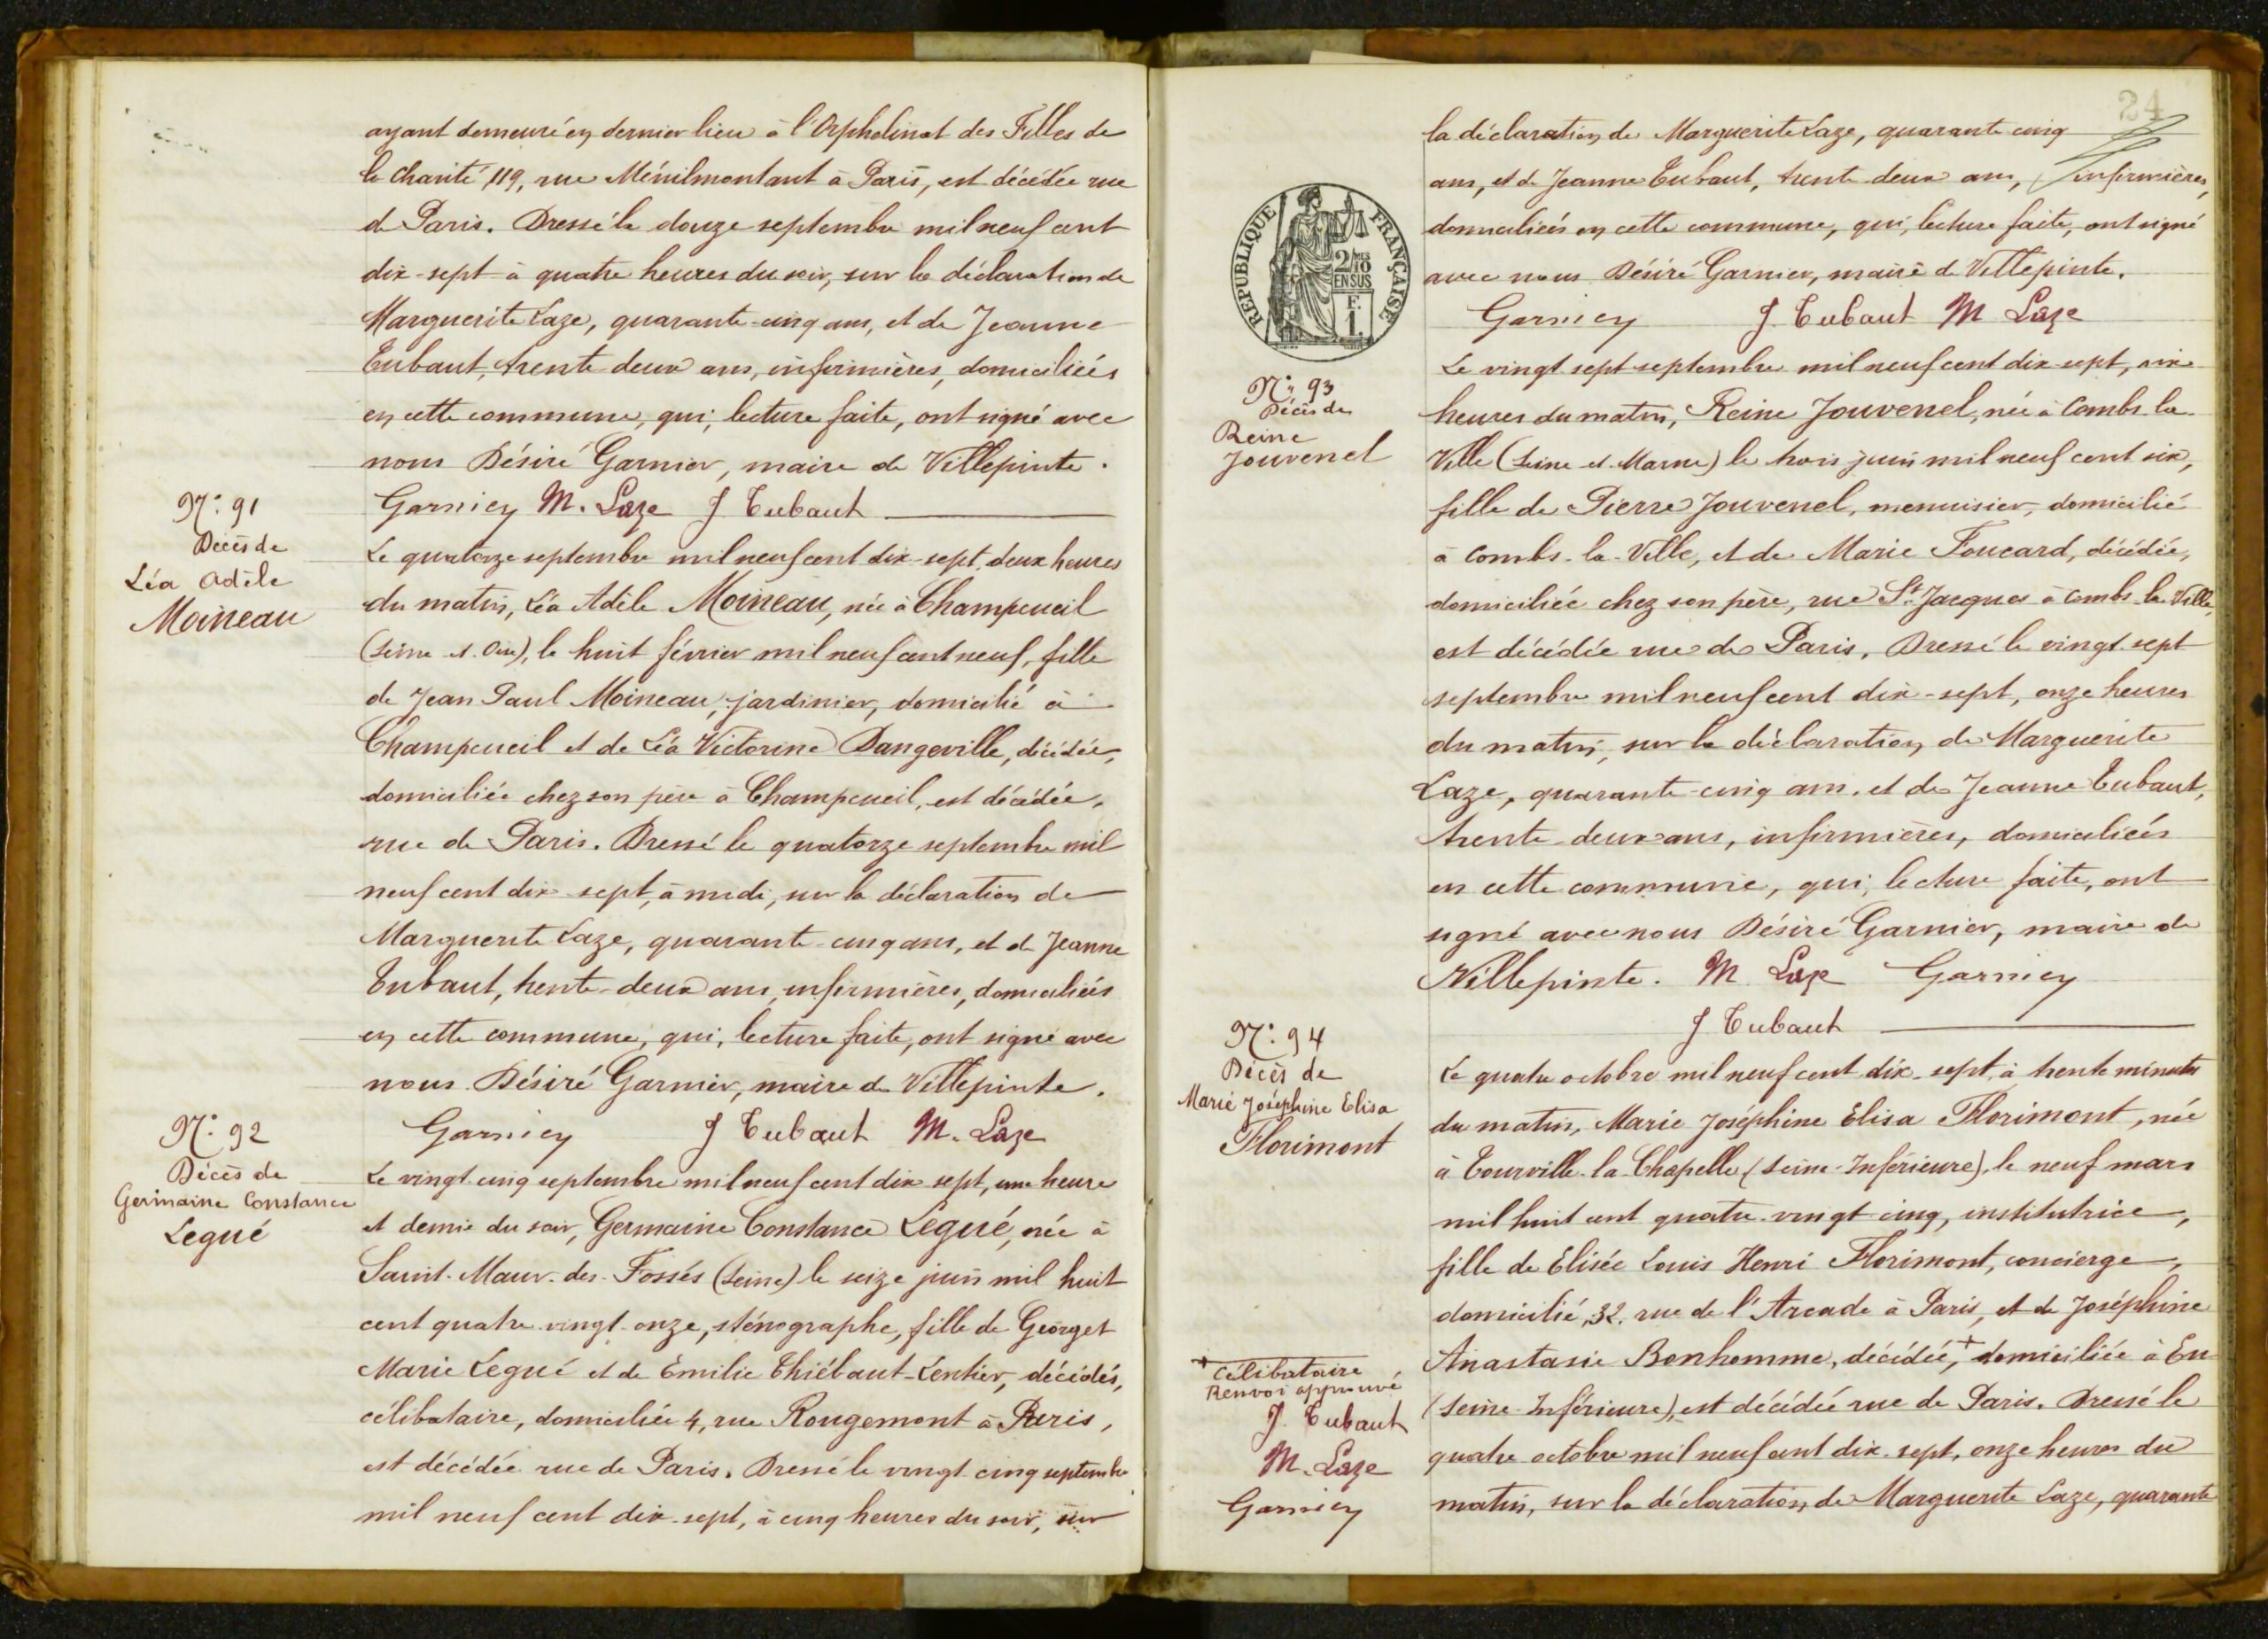 ayant demeuré en dernier lieu à l'Orphelinat des Filles de
la Charité 119, rue Ménilmontant à Paris, est décédée rue
de Paris. Dressé le douze septembre mil neuf cent
dix-sept à quatre heures du soir, sur la déclaration de
Marguerite Laze, quarante-cinq ans, et de Jeanne
Tubaut, trente deux ans, infirmières, domiciliées
en cette commune, qui, lecture faite, ont signé avec
nous Désiré Garnier, maire de Villepinte.
Garnier M. Laze J Tubaut
N° 91
Décès de
Léa Adèle
Moineau
Le quatorze septembre mil neuf cent dix-sept, deux heures
du matin, Léa Adèle Moineau, née à Champcueil
(Seine-et-Oise), le huit février mil neuf cent neuf, fille
de Jean Paul Moineau, jardinier, domicilié à
Champcueil et de Léa Victorine Dangeville, décédée,
domiciliée chez son père à Champcueil, est décédée,
rue de Paris. Dressé le quatorze septembre mil
neuf cent dix-sept, à midi, sur la déclaration de
Marguerite Laze, quarante-cinq ans, et de Jeanne
Tubaut, trente-deux ans, infirmières, domiciliées
en cette commune, qui, lecture faite, ont signé avec
nous Désiré Garnier, maire de Villepinte.
Garnier J Tubaut M. Laze
N° 92
Décès de
Germaine Constance
Legué
Le vingt-cinq septembre mil neuf cent dix sept, une heure
et demie du soir, Germaine Constance Legué, née à
Saint-Maur-des-Fossés (Seine) le seize juin mil huit
cent quatre-vingt-onze, sténographe, fille de Georget
Marie Legué et de Emilie Thiébaut-Lentier, décédés,
célibataire, domiciliée 4, rue Rougemont à Paris,
est décédée rue de Paris. Dressé le vingt cinq septembre
mil neuf cent dix-sept, à cinq heures du soir, sur
24
la déclaration de Marguerite Laze, quarante cinq
ans, et de Jeanne Tubaut, trente-deux ans, infirmières,
domiciliées en cette commune, qui, lecture faite, ont signé
avec nous Désiré Garnier, maire de Villepinte.
Garnier J. Tubaut M Laze
REPUBLIQUE FRANÇAISE
2/10 MES
EN SUS
F.
1.
N° 93
Décès de
Reine
Jouvenel
Le vingt sept septembre mil neuf cent dix-sept, six
heures du matin, Reine Jouvenel, née à Combs-la-
Ville (Seine-et-Marne) le trois juin mil neuf cent six,
fille de Pierre Jouvenel, menuisier, domicilié
à Combs-la-Ville, et de Marie Foucard, décédée,
domiciliée chez son père, rue St Jacques à Combs-la-Ville,
est décédée rue de Paris. Dressé le vingt-sept
septembre mil neuf cent dix-sept, onze heures
du matin, sur la déclaration de Marguerite
Laze, quarante-cinq ans, et de Jeanne Tubaut,
trente-deux ans, infirmières, domiciliées
en cette commune, qui, lecture faite, ont
signé avec nous Désiré Garnier, maire de
Villepinte. M Laze Garnier
J Tubaut
N° 94
Décès de
Marie Joséphine Elisa
Florimont
Le quatre octobre mil neuf cent dix-sept, à trente minutes
du matin, Marie Joséphine Elisa Florimont, née
à Tourville-la-Chapelle (Seine-Inférieure), le neuf mars
mil huit cent quatre-vingt-cinq, institutrice,
fille de Elisée Louis Henri Florimont, concierge,
domicilié, 32, rue de l'Arcade à Paris, et de Joséphine
Anastasie Bonhomme, décédée,+ domiciliée à Eu
(Seine-Inférieure), est décédée rue de Paris. Dressé le
quatre octobre mil neuf cent dix-sept, onze heures du
matin, sur la déclaration de Marguerite Laze, quarante
+ célibataire
Renvoi approuvé
J. Tubaut
M. Laze
Garnier